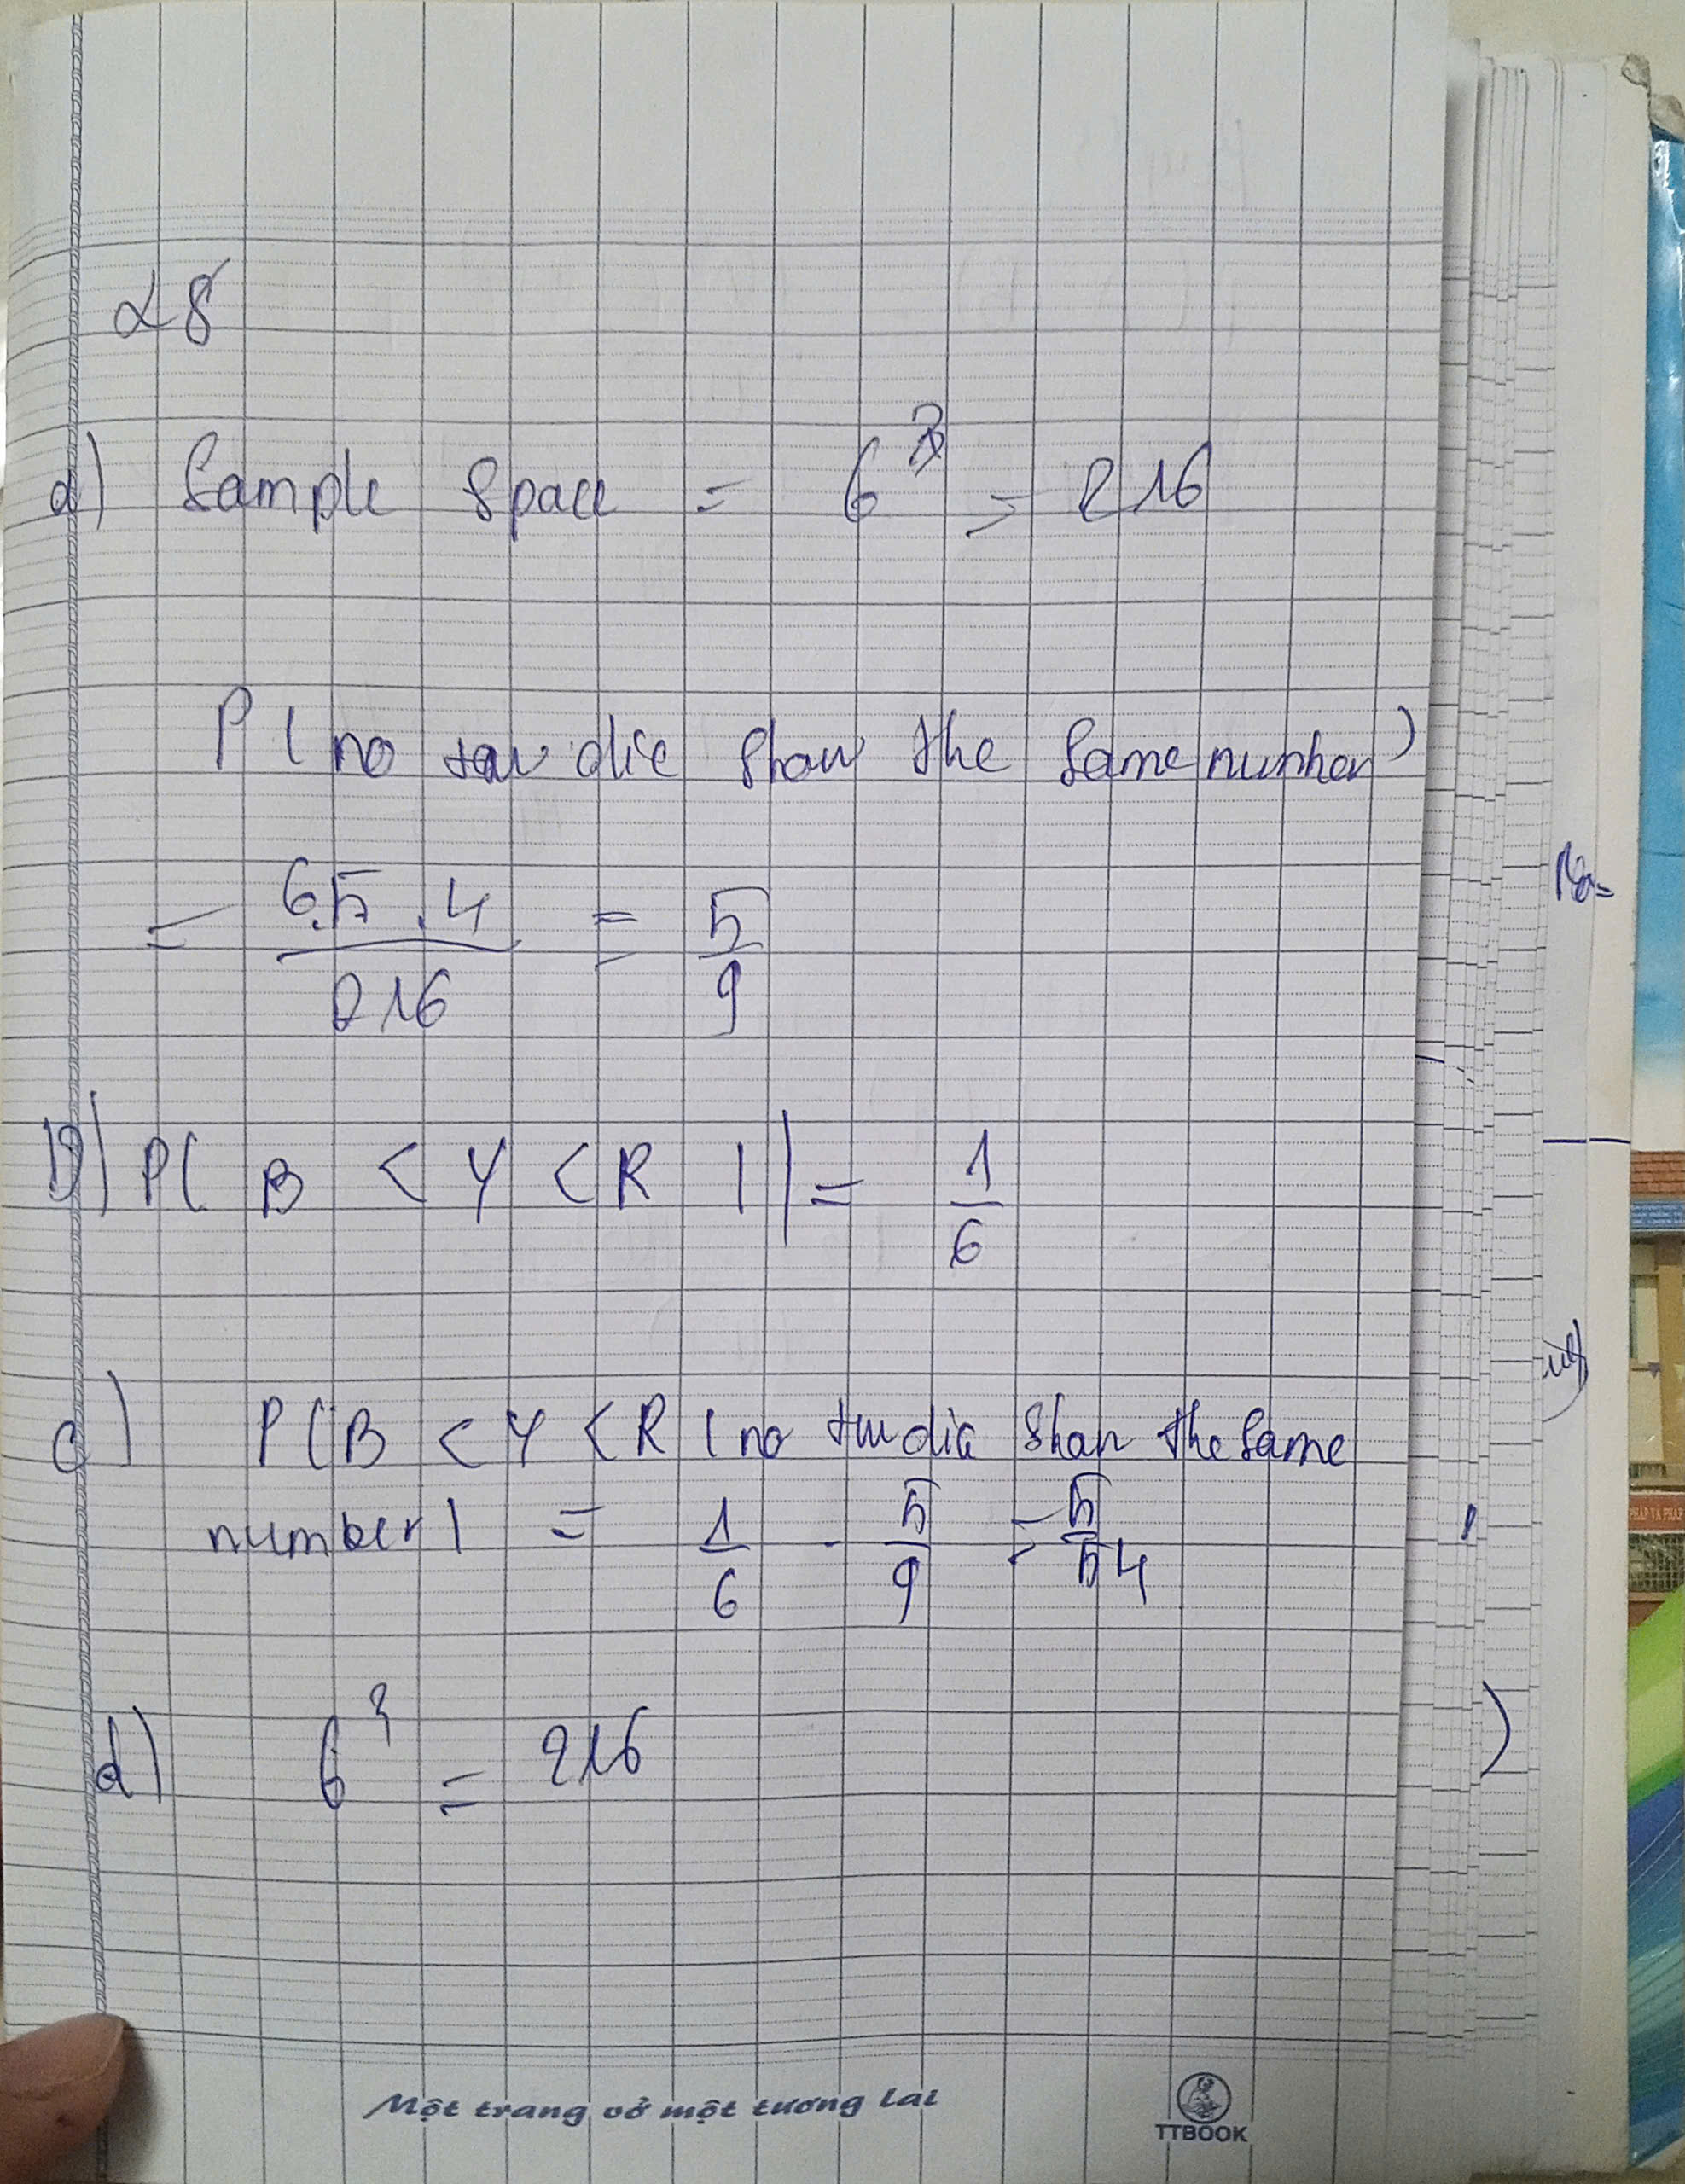 28
a) Sample space = 6³ = 216
P ( no two dice show the same number )
= 6.5.4 / 216 = 5/9
b) P( B < Y < R | ) = 1/6
c) P( B < Y < R | no two dice show the same
number ) = 1/6 . 5/9 = 5/54
d) 6³ = 216
Một trang vở một tương lai
TTBOOK